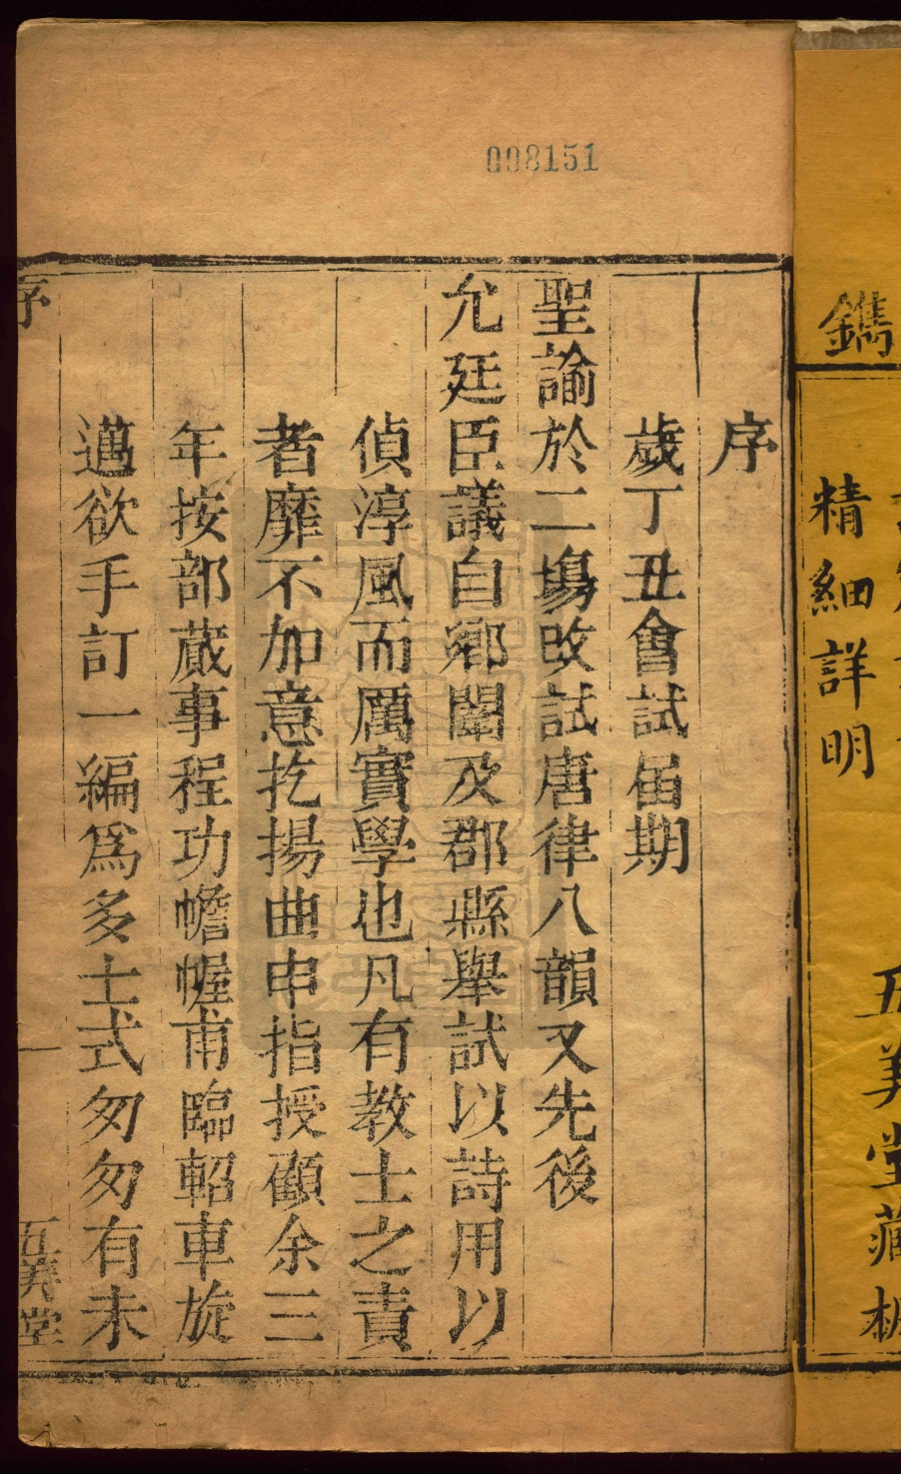 008151
鐫
精細詳明
五美堂藏板
序
歲丁丑會試届期
聖諭於二塲改試唐律八韻又先後
允廷臣議自鄉闈及郡縣舉試以詩用以
偵淳風而厲實學也凡有教士之責
者靡不加意扢揚曲申指授顧余三
年按部蕆事程功幨幄甫臨軺車旋
邁欲手訂一編爲多士式匆匆有未
序
一
五美堂